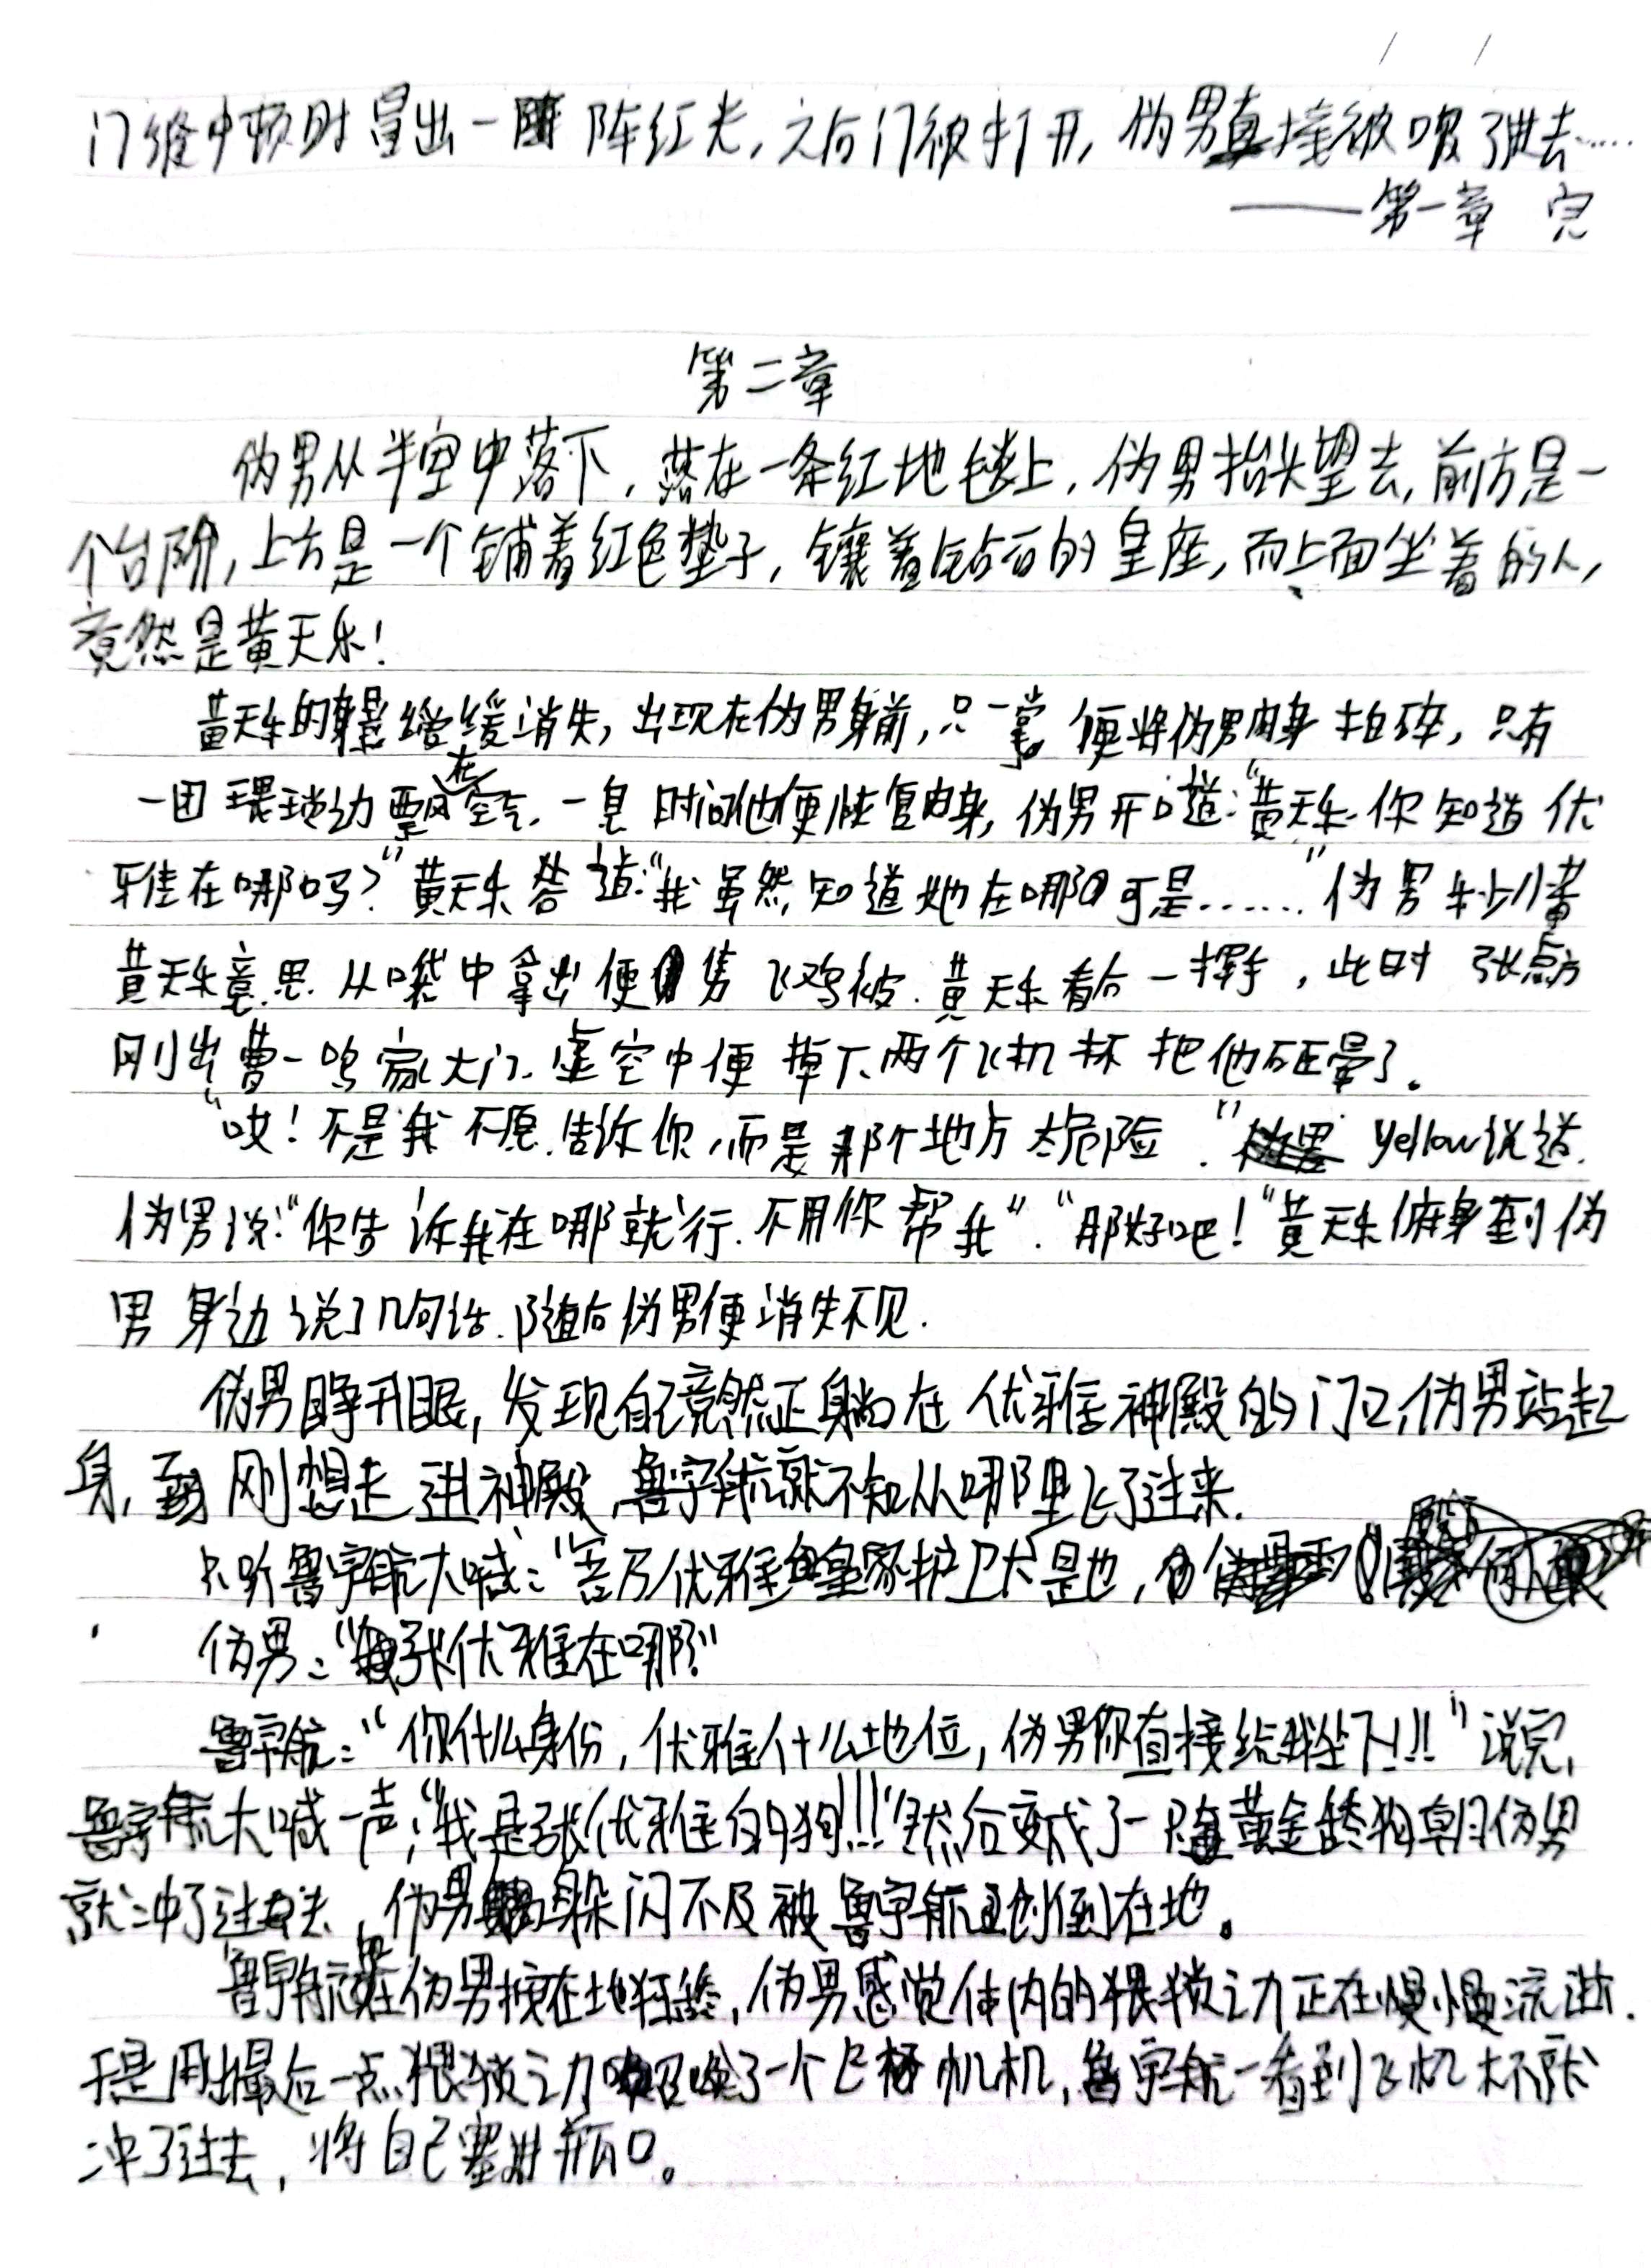 门缝中顿时冒出一阵红光,之后门被打开,伪男直接被吸了进去……
——第一章 完
第二章
伪男从半空中落下,落在一条红地毯上,伪男抬头望去,前方是一
个台阶,上方是一个铺着红色垫子,镶着钻石的皇座,而上面坐着的人,
竟然是黄天乐!
黄天乐的身影缓缓消失,出现在伪男身前,只一掌便将伪男肉身拍碎,只有
一团猥琐力飘在空气.一息时间他便恢复肉身,伪男开口道:“黄天乐.你知道优
雅在哪吗?”黄天乐答道:“我虽然知道她在哪可是……”伪男
黄天乐意思.从口袋中拿出便飞鸡被.黄天乐看后一挥手,此时张
刚出曹一鸣家大门.虚空中便掉下两个飞机杯把他砸晕了。
“哎!不是我不愿告诉你,而是那个地方太危险.”Yellow说道.
伪男说:“你告诉我在哪就行.不用你帮我”.“那好吧!”黄天乐俯身到伪
男身边说了几句话.随后伪男便消失不见.
伪男睁开眼,发现自己竟然正躺在优雅神殿的门口,伪男站起
身,刚想走进神殿,鲁宇航就不知从哪里飞了过来.
只听鲁宇航大喊:“吾乃优雅皇家护卫犬是也,
伪男:“张优雅在哪?”
鲁宇航:“你什么身份,优雅什么地位,伪男你直接给我坐下!!!”说完,
鲁宇航大喊一声:“我是张优雅的狗!!!”然后变成了一只黄金犬狗朝伪男
就冲了过去,伪男躲闪不及被鲁宇航创倒在地。
鲁宇航把伪男按在地狂,伪男感觉体内的猥琐之力正在慢慢流逝.
于是用出最后一点猥琐之力召唤了一个飞杯机机,鲁宇航一看到飞机杯就
冲了过去,将自己塞进瓶口。